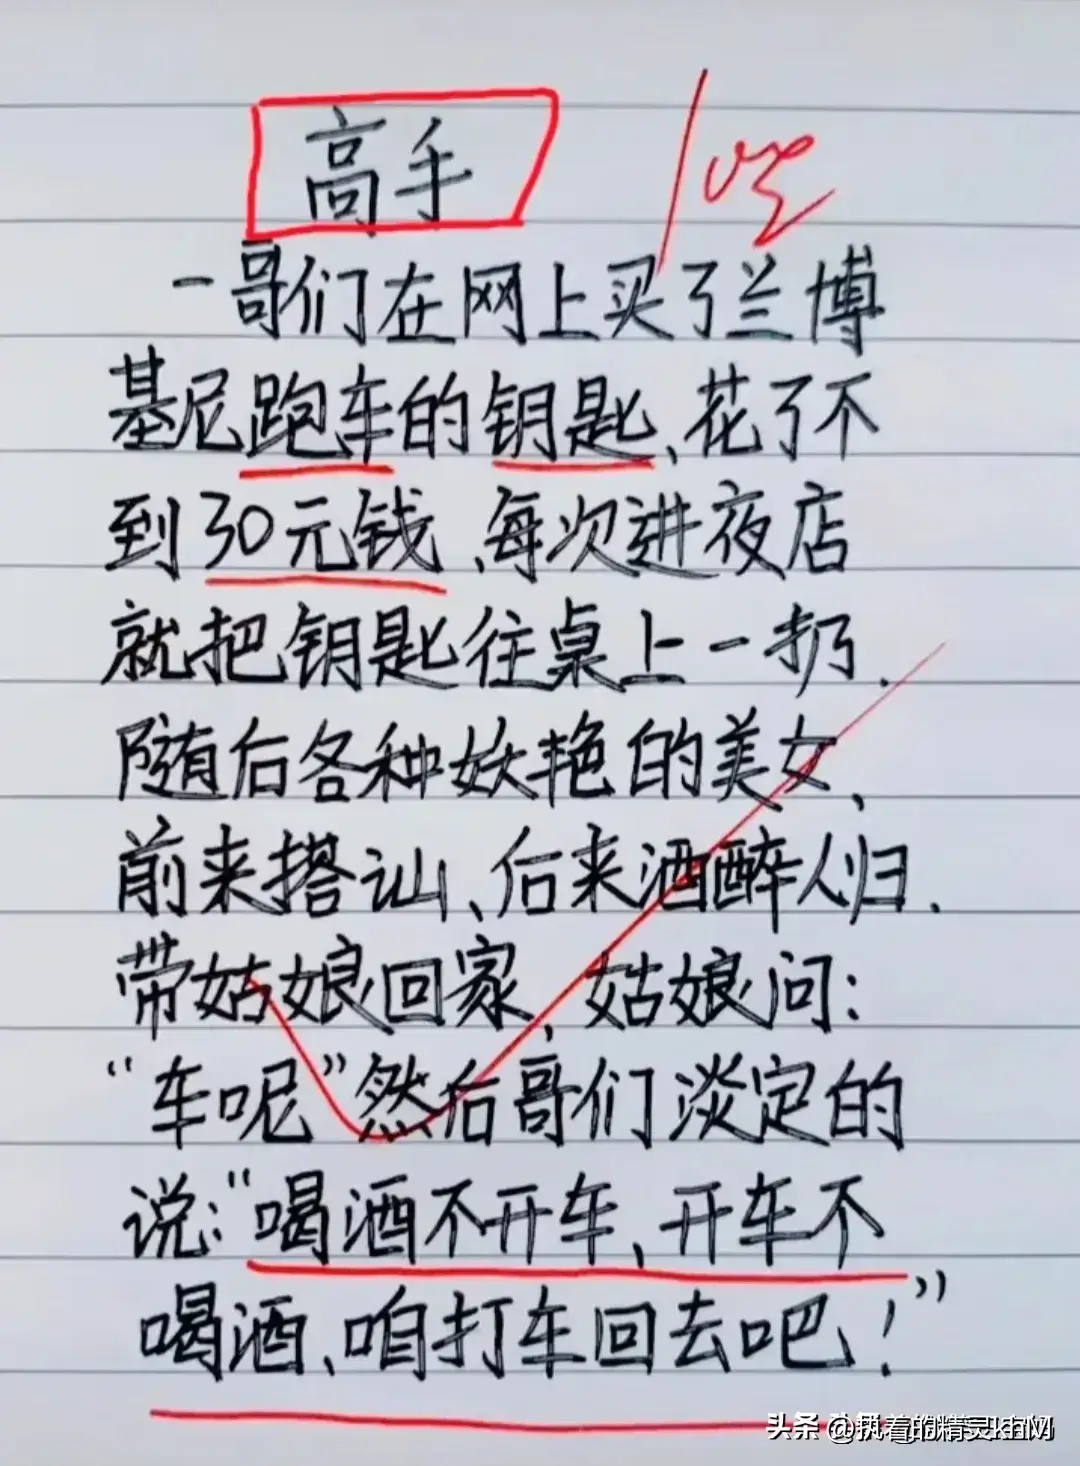 高手
一哥们在网上买了兰博
基尼跑车的钥匙、花了不
到30元钱、每次进夜店
就把钥匙往桌上一扔.
随后各种妖艳的美女、
前来搭讪、后来酒醉人归.
带姑娘回家、姑娘问:
“车呢”然后哥们淡定的
说:“喝酒不开车、开车不
喝酒、咱打车回去吧、!”
头条 @执着的精灵